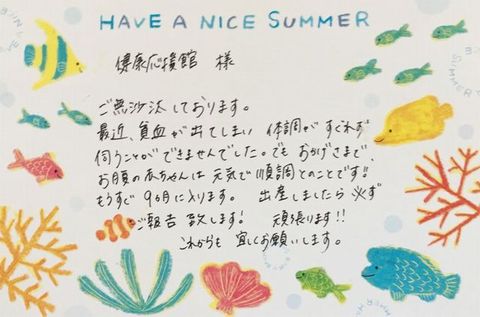 HAVE A NICE SUMMER
健康応援館 様
ご無沙汰しております。
最近、貧血が出てしまい 体調がすぐれず
伺うことができませんでした。でも おかげさまで、
お腹の赤ちゃんは 元気で順調とのことです!!
もうすぐ 9ヵ月に入ります。 出産しましたら 必ず
ご報告 致します! 頑張ります!!
これからも 宜しくお願いします。